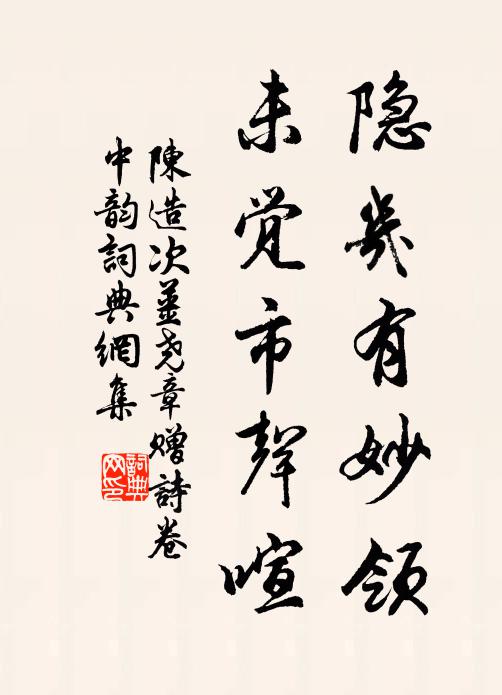 隐几有妙领
未觉市聲喧
陳造次姜尧章赠詩卷
中韵詞典網集
詞典
网印